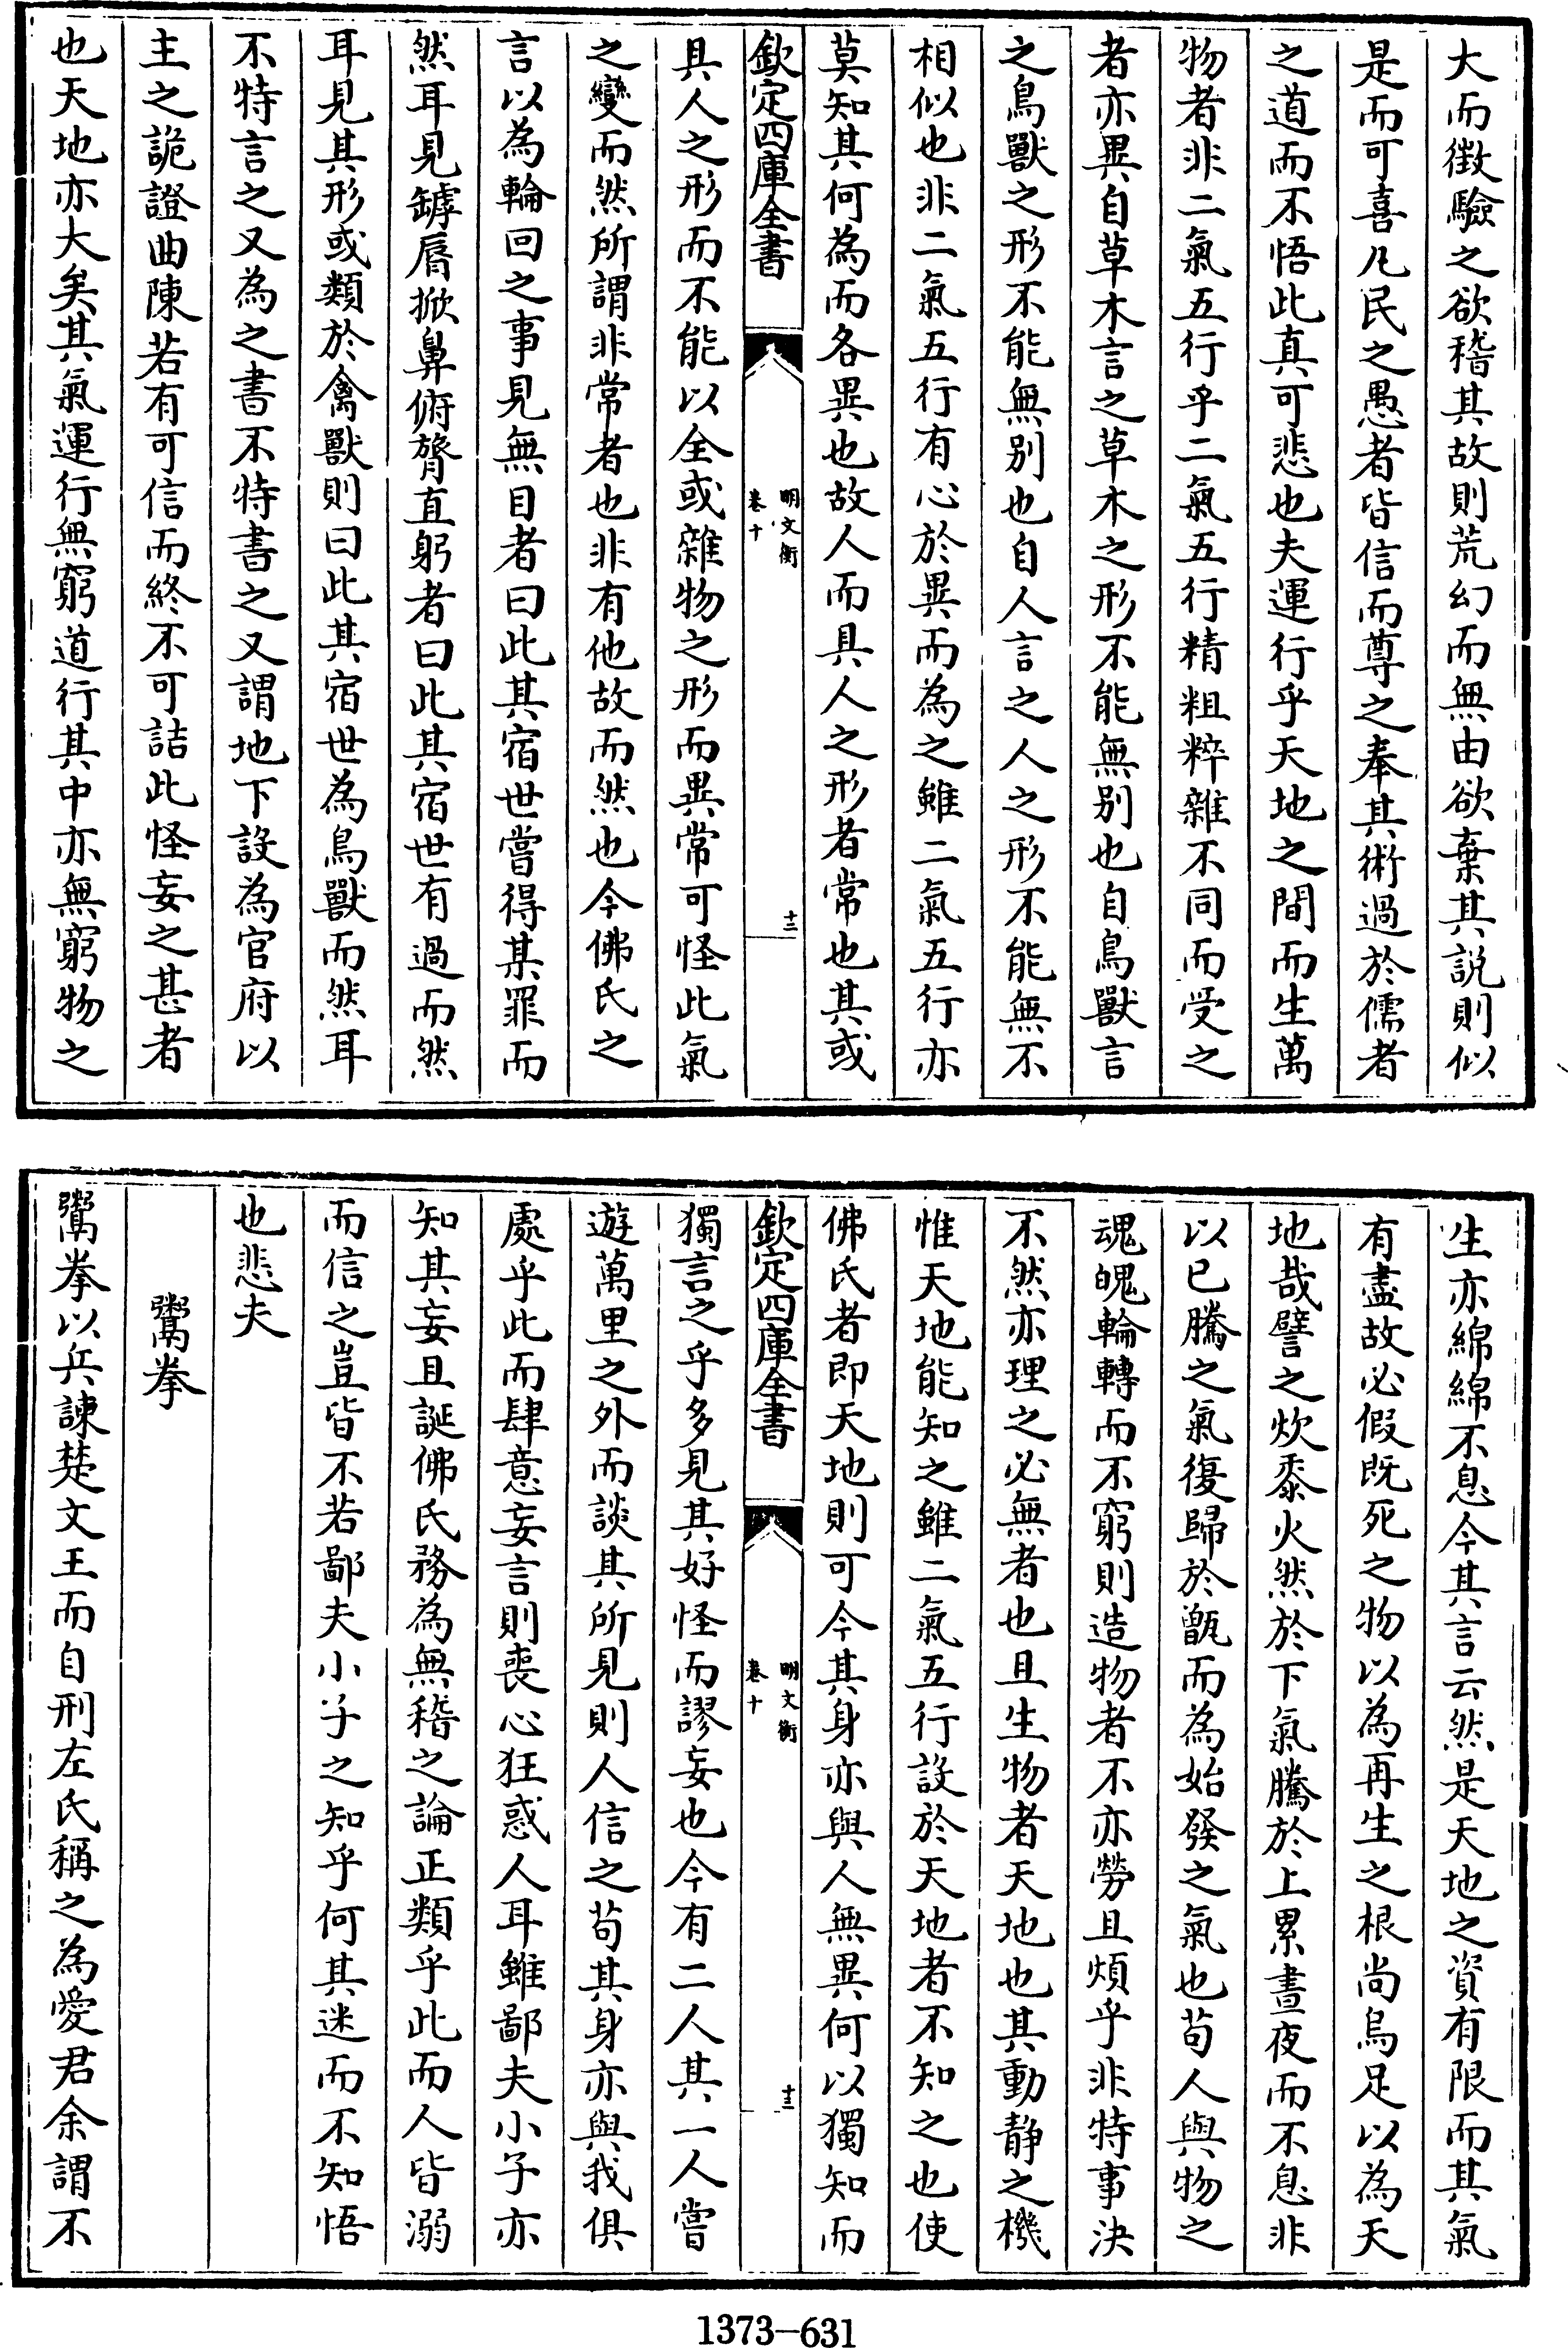 大而徴驗之欲稽其故則荒幻而無由欲棄其説則似
是而可喜凡民之愚者皆信而尊之奉其術過於儒者
之道而不悟此真可悲也夫運行乎天地之間而生萬
物者非二氣五行乎二氣五行精粗粹雜不同而受之
者亦異自草木言之草木之形不能無别也自鳥獸言
之鳥獸之形不能無别也自人言之人之形不能無不
相似也非二氣五行有心於異而為之雖二氣五行亦
莫知其何為而各異也故人而具人之形者常也其或
欽定四庫全書
明文衡
卷十
十二
具人之形而不能以全或雜物之形而異常可怪此氣
之變而然所謂非常者也非有他故而然也今佛氏之
言以為輪回之事見無目者曰此其宿世嘗得某罪而
然耳見罅唇掀鼻俯膂直躬者曰此其宿世有過而然
耳見其形或類於禽獸則曰此其宿世為鳥獸而然耳
不特言之又為之書不特書之又謂地下設為官府以
主之詭證曲陳若有可信而終不可詰此怪妄之甚者
也天地亦大矣其氣運行無窮道行其中亦無窮物之
生亦綿綿不息今其言云然是天地之資有限而其氣
有盡故必假既死之物以為再生之根尚烏足以為天
地哉譬之炊黍火然於下氣騰於上累晝夜而不息非
以已騰之氣復歸於甑而為始發之氣也茍人與物之
魂魄輪轉而不窮則造物者不亦勞且煩乎非特事決
不然亦理之必無者也且生物者天地也其動静之機
惟天地能知之雖二氣五行設於天地者不知之也使
佛氏者即天地則可今其身亦與人無異何以獨知而
欽定四庫全書
明文衡
卷十
十三
獨言之乎多見其好怪而謬妄也今有二人其一人嘗
遊萬里之外而談其所見則人信之茍其身亦與我俱
處乎此而肆意妄言則喪心狂惑人耳雖鄙夫小子亦
知其妄且誕佛氏務為無稽之論正類乎此而人皆溺
而信之豈皆不若鄙夫小子之知乎何其迷而不知悟
也悲夫
鬻拳
鬻拳以兵諫楚文王而自刑左氏稱之為愛君余謂不
1373—631